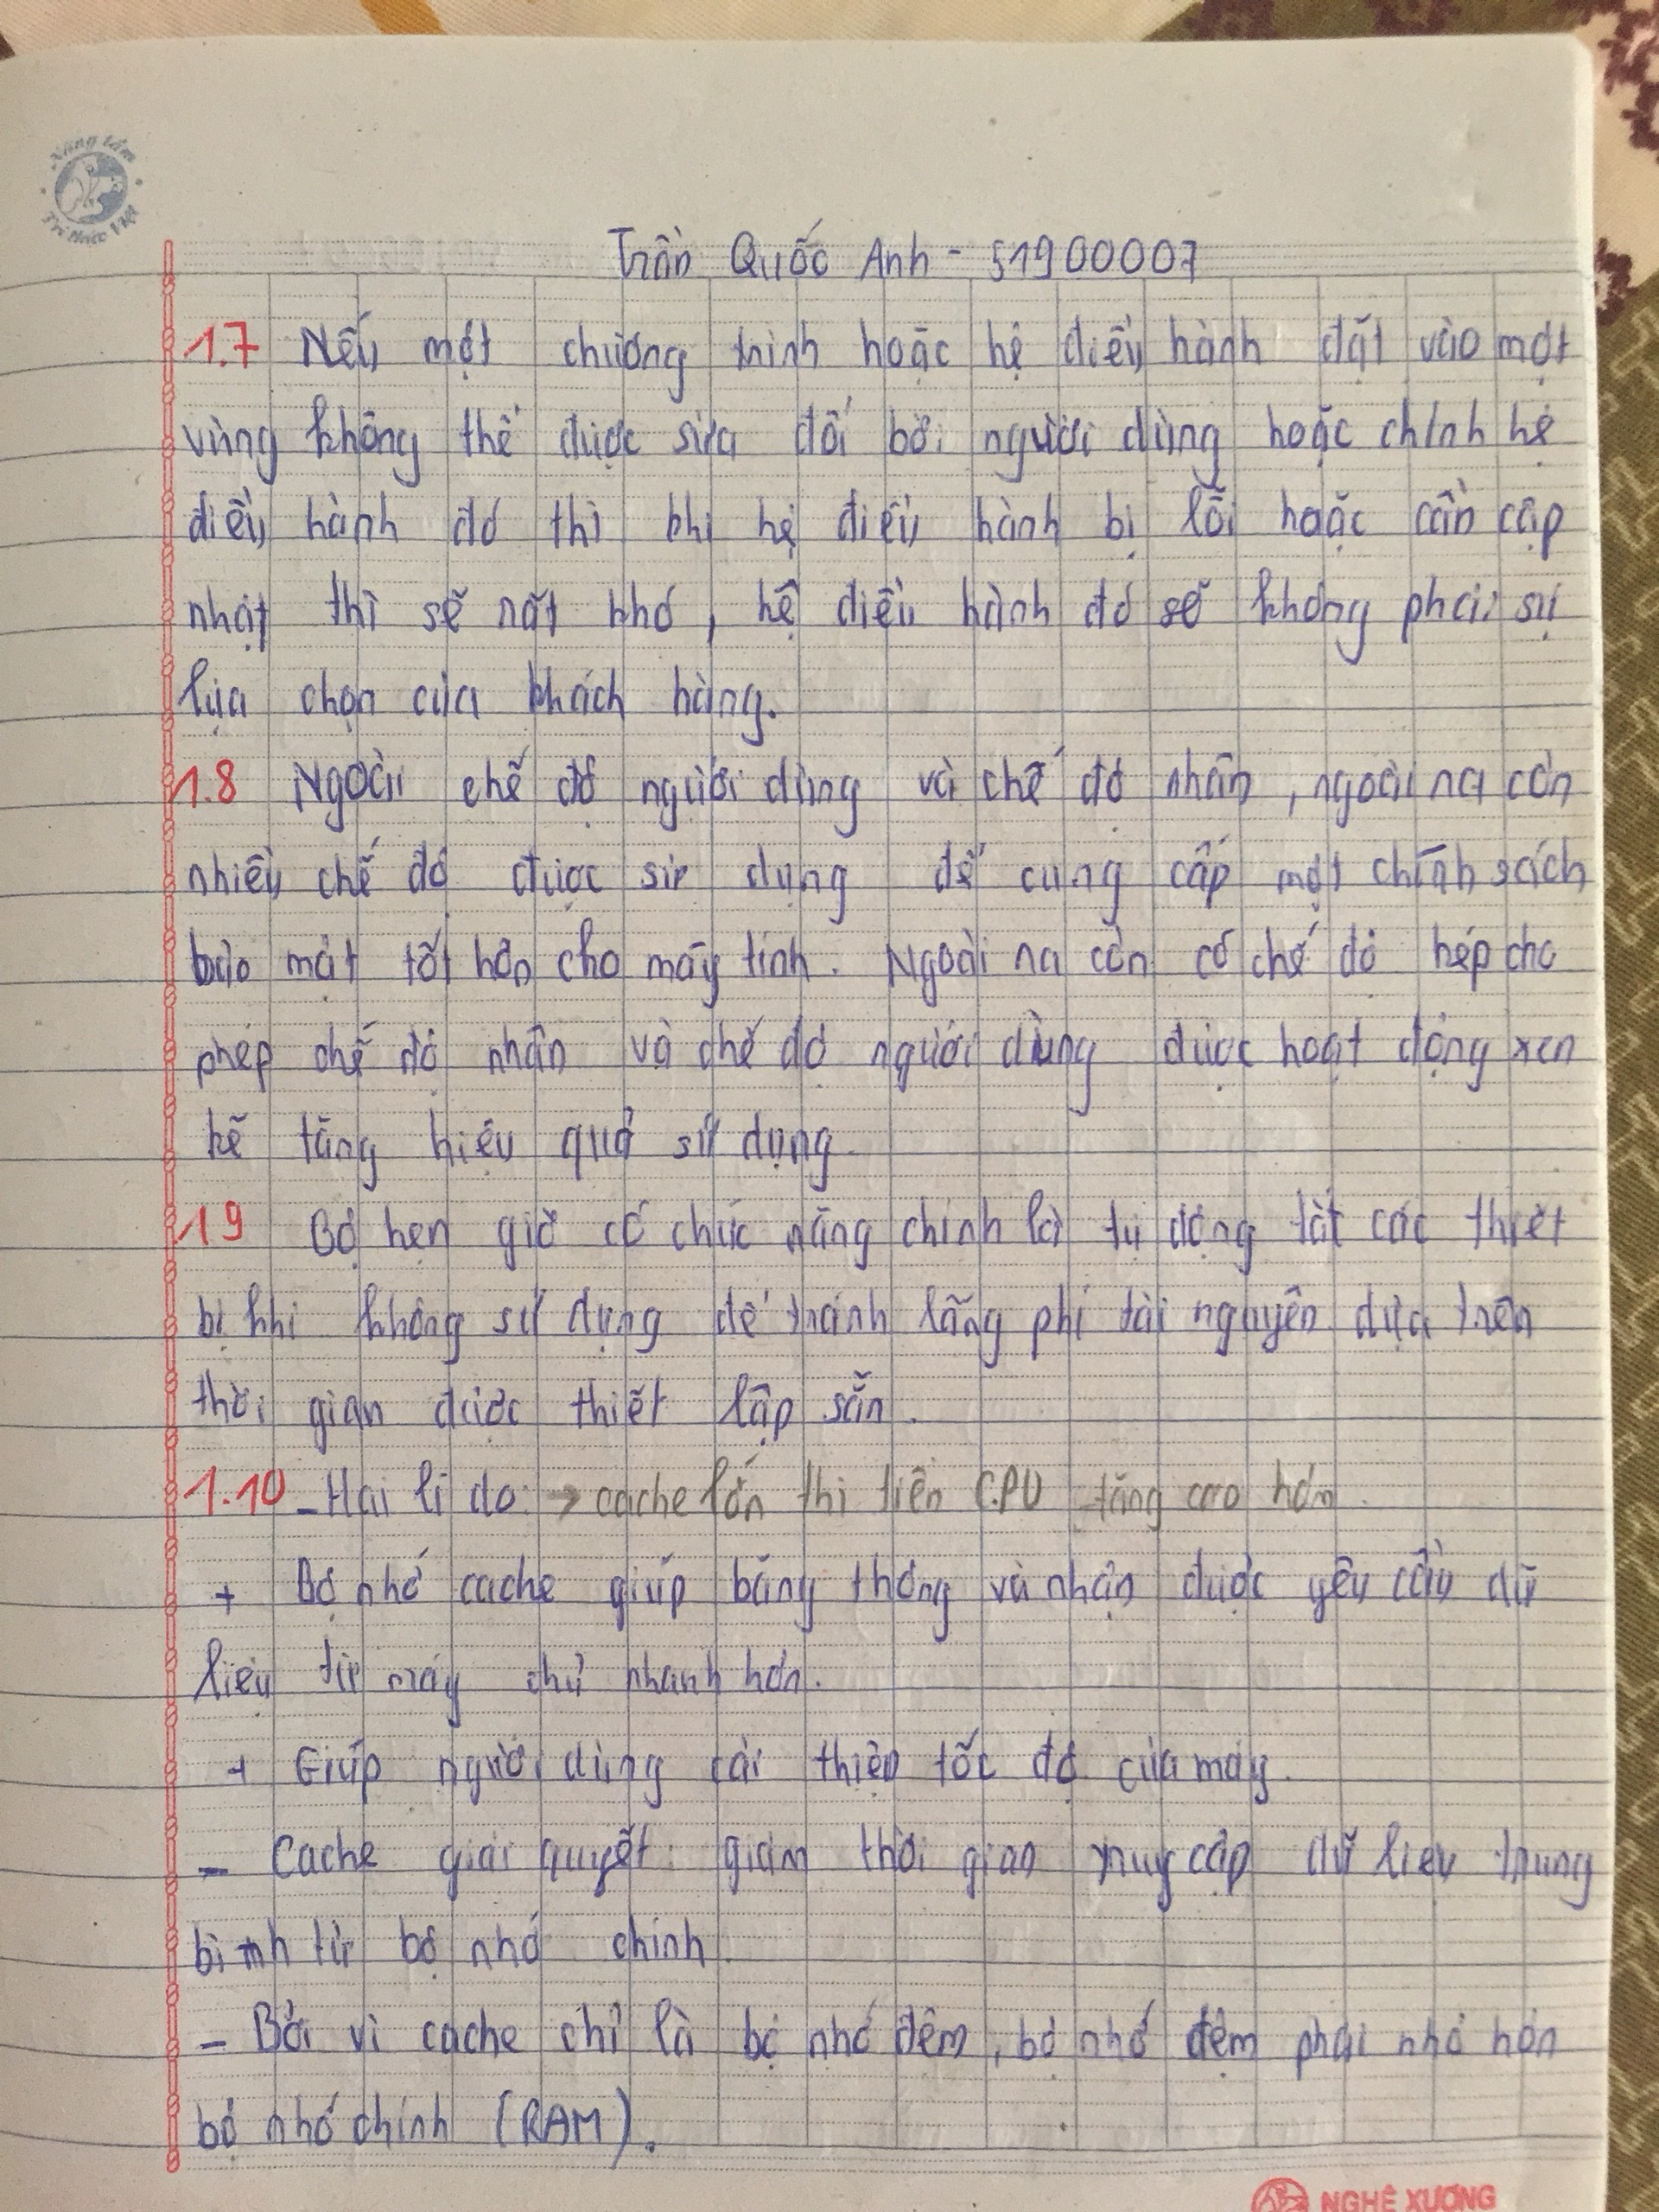 Nâng tầm
Tri thức Việt
Trần Quốc Anh - 51900007
1.7 Nếu một chương trình hoặc hệ điều hành đặt vào một
vùng không thể được sửa đổi bởi người dùng hoặc chính hệ
điều hành đó thì khi hệ điều hành bị lỗi hoặc cần cập
nhật thì sẽ rất khó, hệ điều hành đó sẽ không phải sự
lựa chọn của khách hàng.
1.8 Ngoài chế độ người dùng và chế độ nhân, ngoài ra còn
nhiều chế độ được sử dụng để cung cấp một chính sách
bảo mật tốt hơn cho máy tính. Ngoài ra còn có chế độ hẹp cho
phép chế độ nhân và chế độ người dùng được hoạt động xen
kẽ tăng hiệu quả sử dụng.
1.9 Bộ hẹn giờ có chức năng chính là tự động tắt các thiết
bị khi không sử dụng để tránh lãng phí tài nguyên dựa trên
thời gian được thiết lập sẵn.
1.10 - Hai lí do: → cache lớn thì tiền CPU tăng cao hơn.
+ Bộ nhớ cache giúp băng thông và nhận được yêu cầu dữ
liệu từ máy chủ nhanh hơn.
+ Giúp người dùng cải thiện tốc độ của máy.
- Cache giải quyết: giảm thời gian truy cập dữ liệu trung
bình từ bộ nhớ chính.
- Bởi vì cache chỉ là bộ nhớ đệm, bộ nhớ đệm phải nhỏ hơn
bộ nhớ chính (RAM).
NGHỆ XƯƠNG